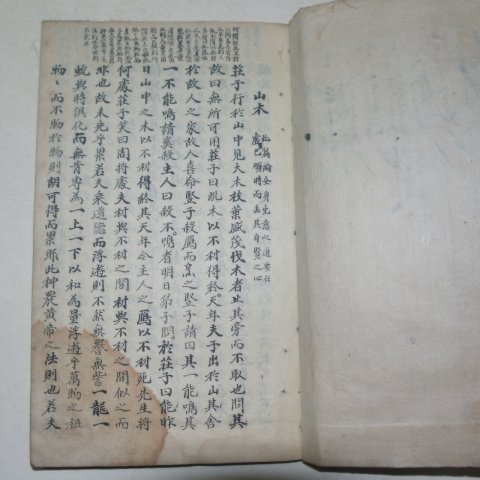 山木 此篇論全身免患之道要在
虛己順時而去其自賢之心
莊子行於山中見大木枝葉盛茂伐木者止其旁而不取也問其
故曰無所可用莊子曰此木以不材得終天年夫子出於山其舍
於故人之家故人喜命豎子殺鴈而烹之豎子請曰其一能鳴其
一不能鳴請奚殺主人曰殺不鳴者明日弟子問於莊子曰昨
日山中之木以不材得終其天年今主人之鴈以不材死先生將
何處莊子笑曰周將處夫材與不材之間材與不材之間似之而
非也故未免乎累若夫乘道德而浮遊則不然無譽無訾一龍一
蛇與時俱化而無肯專為一上一下以和為量浮遊乎萬物之祖
物〻而不物於物則胡可得而累邪此神農黃帝之法則也若夫